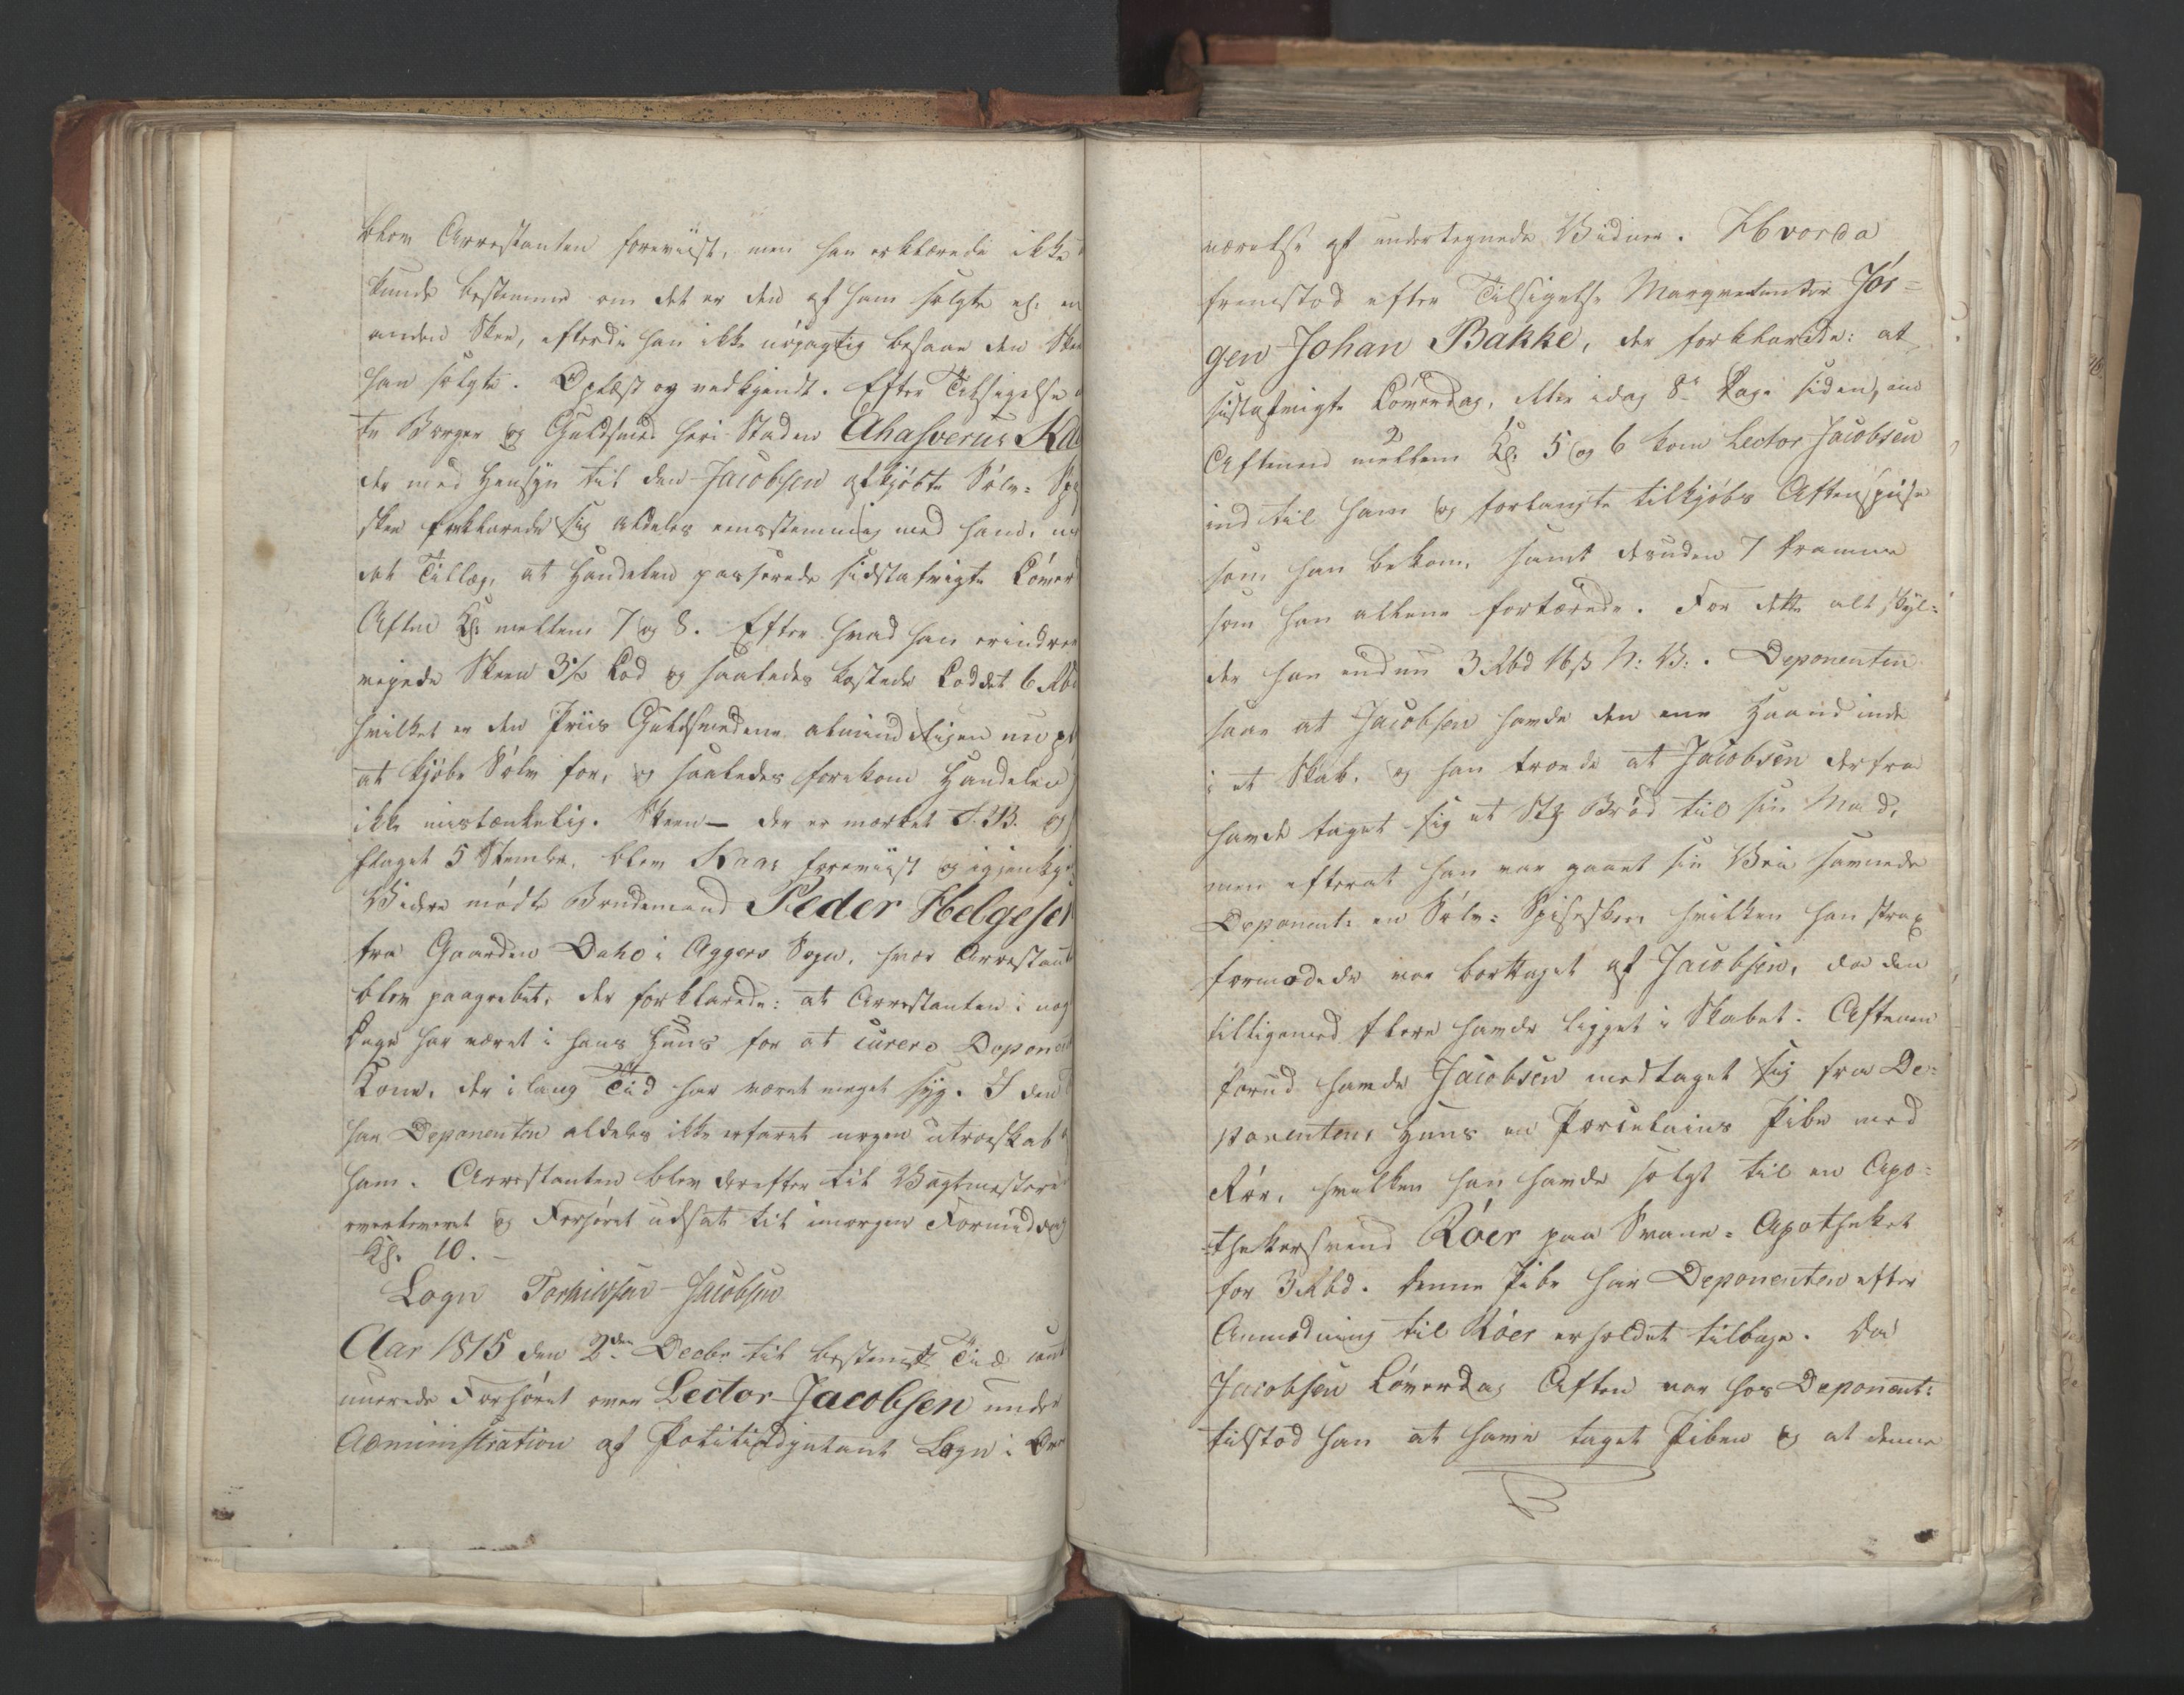 blev Arrestanten foreviist, men han erklærede ikke
kunde bestemme om det er den af ham solgte el: en
anden Skee, efterdi han ikke nöyagtig besaae den Skee
han solgte. Oplæst og vedkjendt. Efter Tilsigelse
te Borger og Guldsmed heri Staden Ahasverus Ka
der med Hensyn til den Jacobsen afkjöbte Sölv-
skee forklarede sig aldeles eensstemmig med ham, m
det Tillæg, at Handelen passerede sidstafvigte Löver
Aften Kl: mellem 7 og 8. Efter hvad han erindrer
veyede Skeen 3½ Lod og saaledes kostede Loddet 6 Rbd
hvilket er den Priis Guldsmedene almindeligen nu pl
at kjöbe Sölv for, og saaledes forekom Handelen
ikke mistænkelig. Skeen – der er mærket S. B. og
slaget 5 Stempler, blev Kaas foreviist og igjenkje
Videre mödte Brudemand Peder Helgesen
fra Gaarden Oaho i Aggers Sogn, hvor Arrestant
blev paagrebet, der forklarede: at Arrestanten i nog
Dage har været i hans Huus for at curere Deponent
Kone, der i lang Tid har været meget syg. I den
har Deponenten aldeles ikke erfaret nogen utroeskab
ham. Arrestanten blev derefter til Vagtmester
overleveret og Forhöret udsat til imorgen Formiddag
Kl. 10. –
Logn Torkildsen Jacobsen
Aar 1815 den 2den Decbr til bestemt Tiid cont
nuerede Forhöret over Lector Jacobsen under
Administration af Politieadjutant Logn i Over
værelse af undertegnede Vidner. Hvorda
fremstod efter Tilsigelse Marqvetenter Jör-
gen Johan Bakke, der forklarede: at
sistafvigte Löverdag, eller idag 8te Dage siden, om
Aftenen mellem Kl. 5 og 6 kom Lector Jacobsen
ind til ham og forlangte tilkjöbs Aftenspise
som han bekom, samt desuden 7 Dramme
som han allene fortærede. For dette alt skyl-
der han endnu 3 Rbd 16 ß N: V:. Deponenten
saae at Jacobsen havde den ene Haand inde
i et Skab, og han troede at Jacobsen derfra
havde taget sig et Stk Bröd til sin Mad,
men efterat han var gaaet sin Vei savnede
Deponent: en Sölv-Spiseskee, hvilken han strax
formodede var borttaget af Jacobsen, da den
tilligemed flere havde ligget i Skabet. Aftenen
forud havde Jacobsen medtaget sig fra De-
ponentens Huus en Porcelains Pibe med
Rör, hvilken han havde solgt til en Apo-
thekersvend Röer paa Svane-Apotheket
for 3 Rbd. Denne Pibe har Deponenten efter
Anmodning til Röer erholdet tilbage. Da
Jacobsen Löverdag Aften var hos Deponent:
tilstod han at have taget Piben og at denne